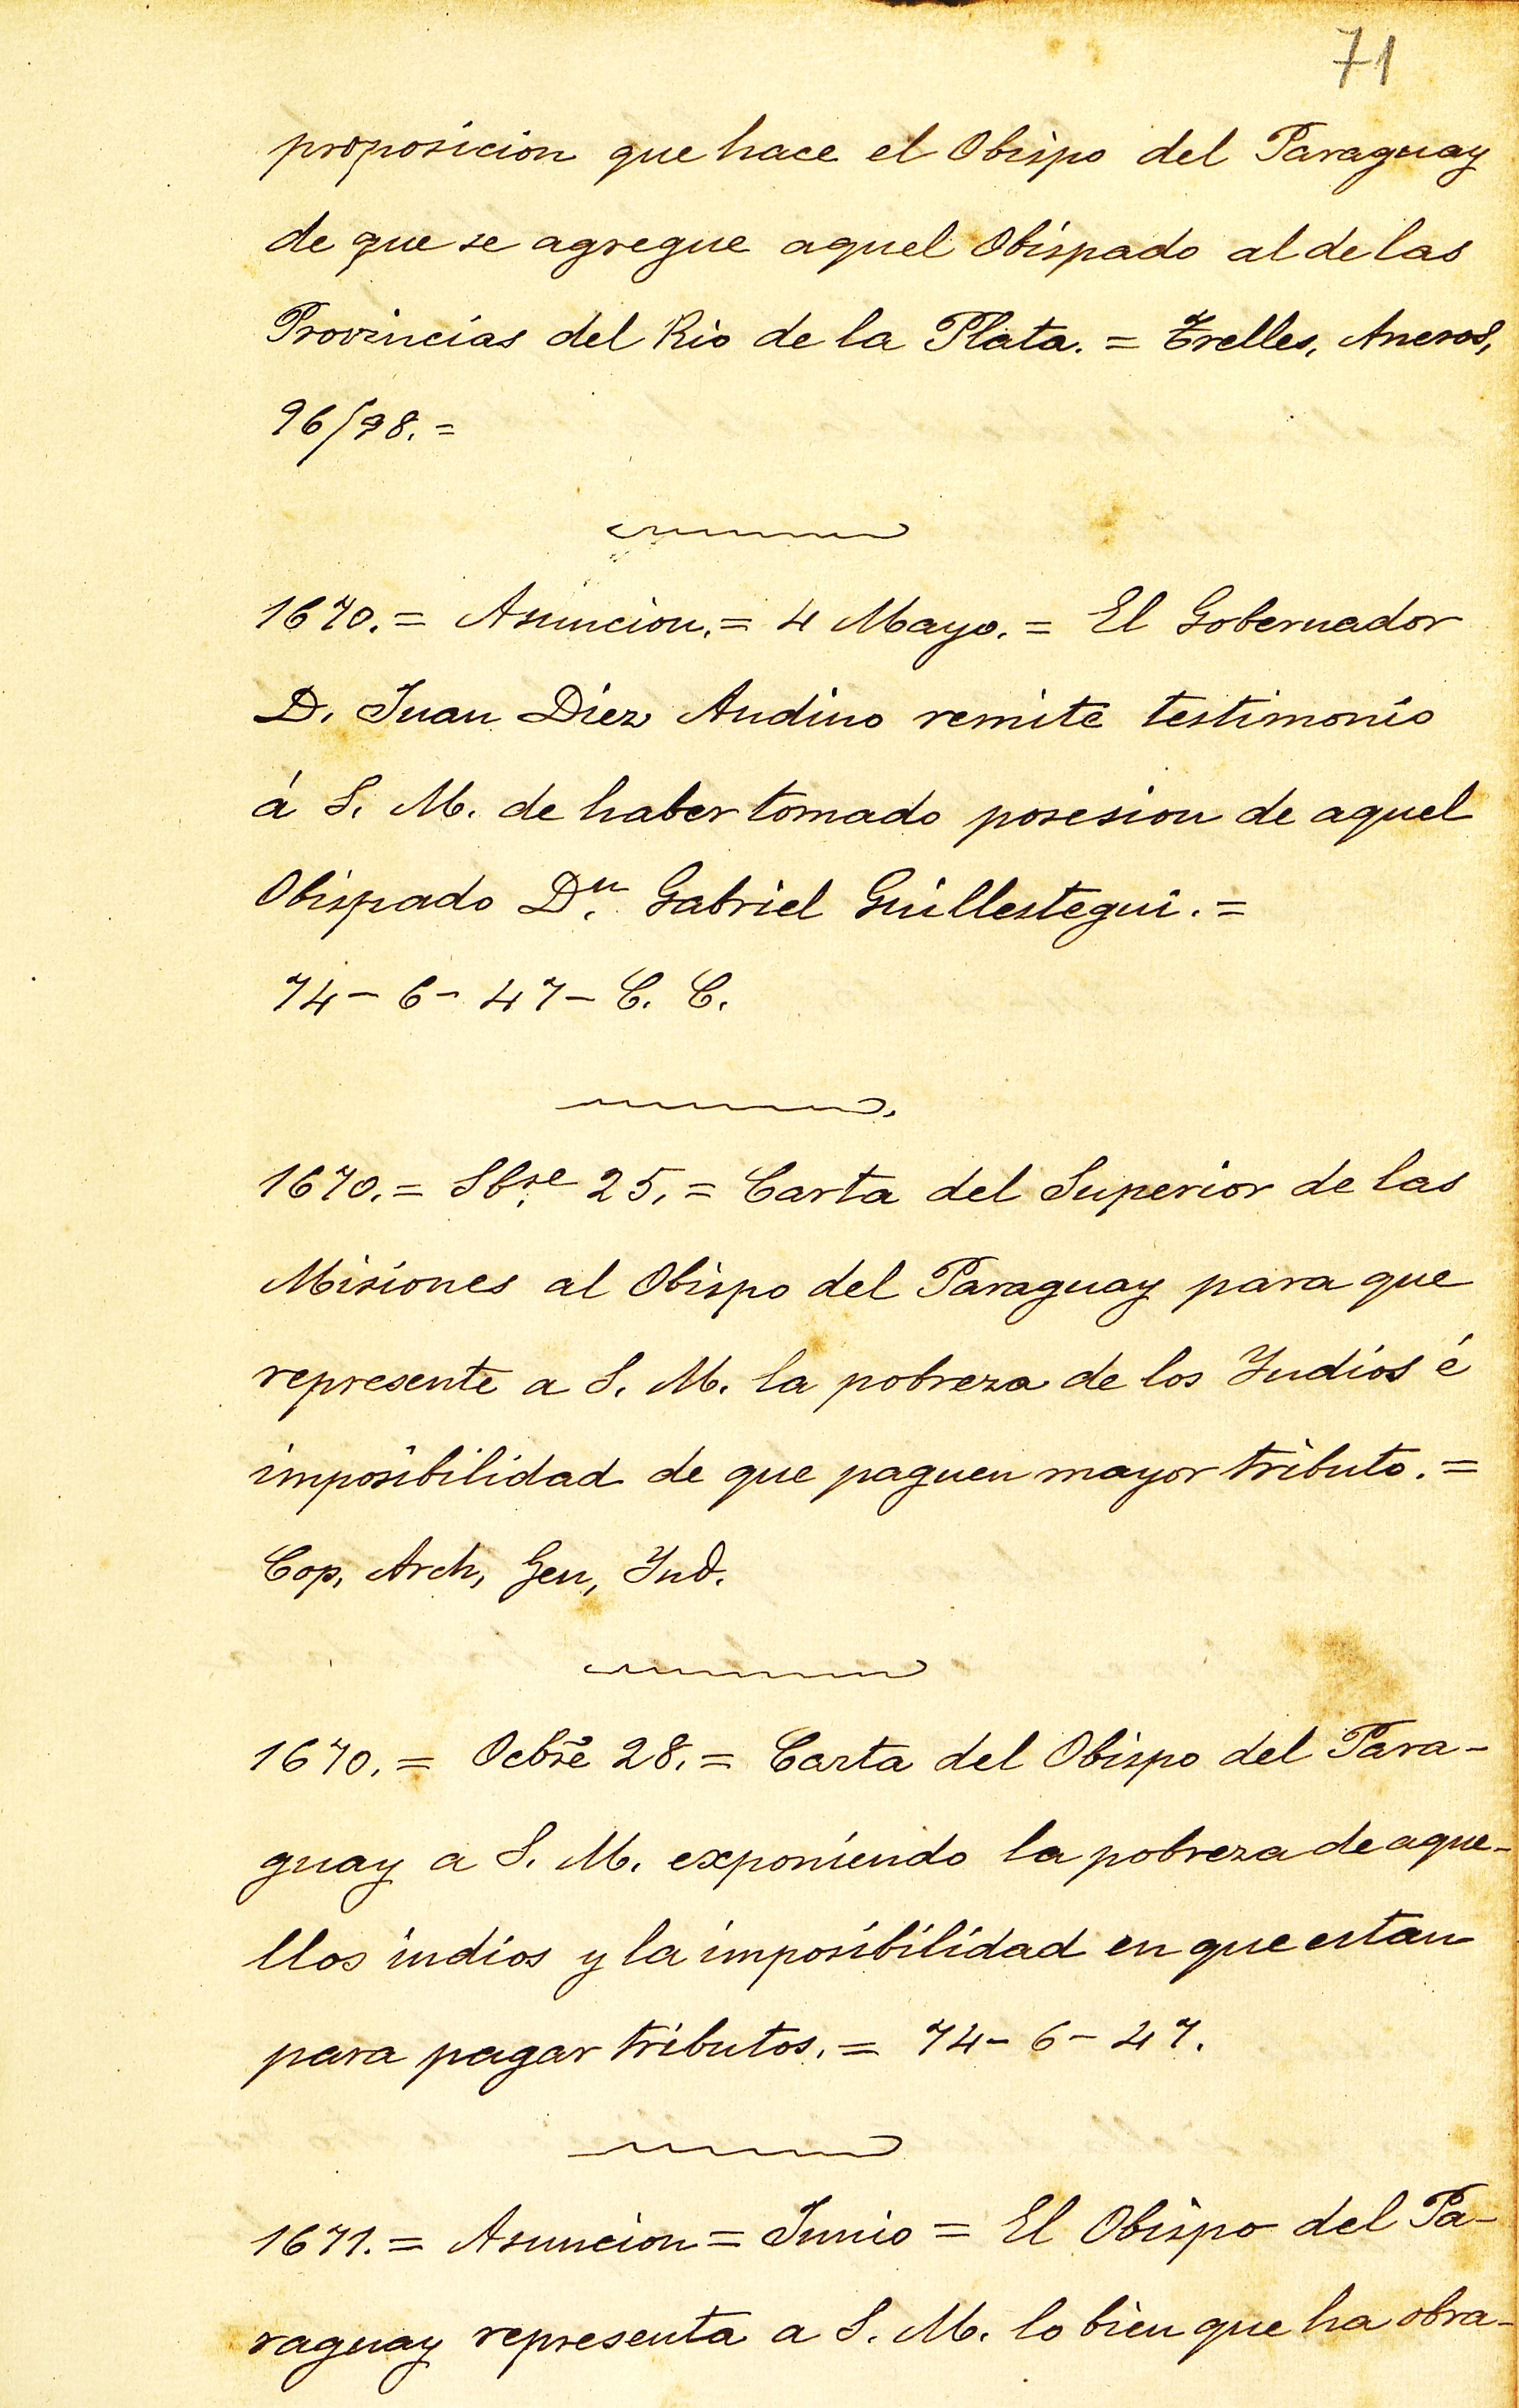 71
proposicion que hace el Obispo del Paraguay
de que se agregue aquel Obispado al de las
Provincias del Rio de la Plata. = Trelles, Anexos,
96/98. =
1670. = Asuncion. = 4 Mayo. = El Gobernador
D. Juan Diez Andino remite testimonio
á S. M. de haber tomado posesion de aquel
Obispado Dn. Gabriel Guillestegui. =
74 - 6 - 47 - C. C.
1670. = Sbre 25. = Carta del Superior de las
Misiones al Obispo del Paraguay para que
represente a S. M. la pobreza de los Yndios é
imposibilidad de que paguen mayor tributo. =
Cop, Arch, Gen, Ynd.
1670. = Ocbre 28. = Carta del Obispo del Para-
guay a S. M. exponiendo la pobreza de aque-
llos indios y la imposibilidad en que estan
para pagar tributos. = 74 - 6 - 47.
1671. = Asuncion = Junio = El Obispo del Pa-
raguay representa a S. M. lo bien que ha obra-